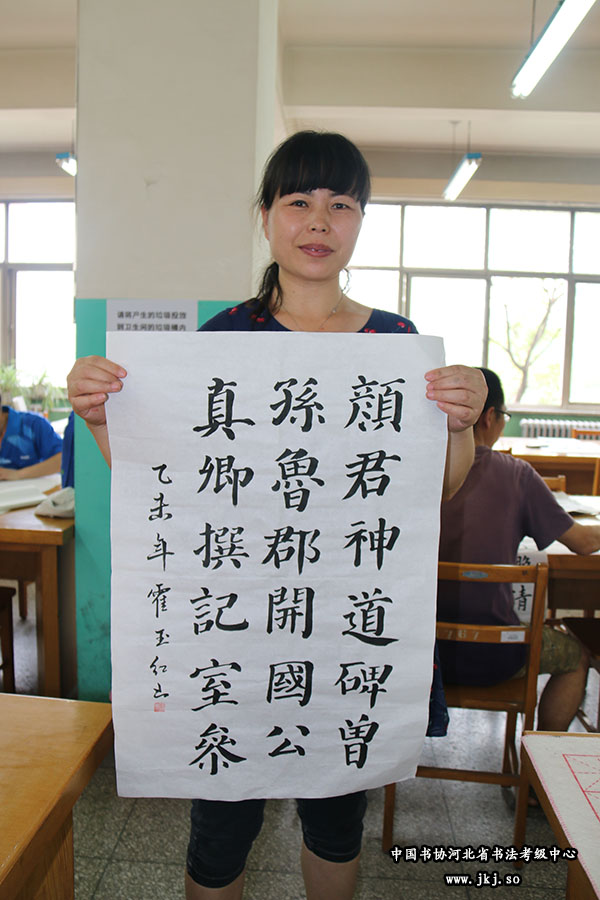 顔君神道碑曾
孫魯郡開國公
真卿撰記室參
乙未年霍玉红书
请将产生的垃圾投放
到卫生间的垃圾桶内
767
清
中国书协河北省书法考级中心
www.jkj.so